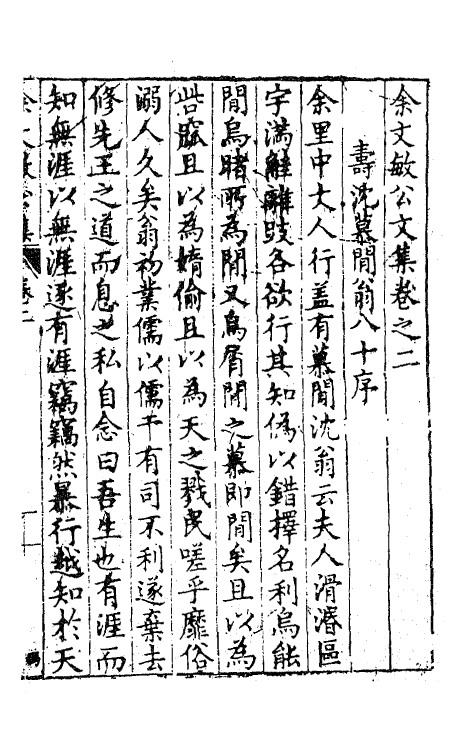 余文敏公文集卷之二
壽沈慕閒翁八十序
余里中大人行盖有慕閒沈翁云夫人滑湣區
宇滿觟離跂各欲行其知僞以錯擇名利烏能
閒烏睹所為閒又烏屑閒之慕即閒矣且以為
呰窳且以為媠偷且以為天之戮民嗟乎靡俗
溺人久矣翁初業儒以儒干有司不利遂棄去
修先王之道而息之私自念曰吾生也有涯而
知無涯以無涯逐有涯竊竊然暴行越知於天
余文敏公集 卷二